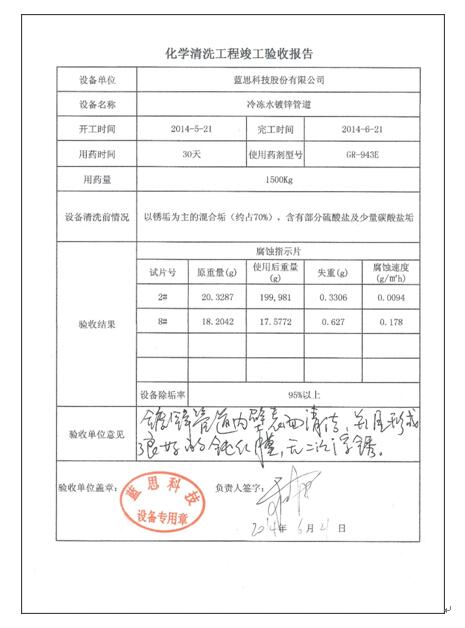 化学清洗工程竣工验收报告
设备单位 蓝思科技股份有限公司
设备名称 冷冻水镀锌管道
开工时间 2014-5-21 完工时间 2014-6-21
用药时间 30天 使用药剂型号 GR-943E
用药量 1500Kg
设备清洗前情况 以锈垢为主的混合垢（约占70%），含有部分硫酸盐及少量碳酸盐垢
验收结果
腐蚀指示片
试片号 原重量(g) 使用后重量(g) 失重(g) 腐蚀速度(g/m²h)
2# 20.3287 199,981 0.3306 0.0094
8# 18.2042 17.5772 0.627 0.178
设备除垢率 95%以上
验收单位意见 镀锌管道内壁表面清洁，并且形成
良好的钝化膜，无二次浮锈。
验收单位盖章： 负责人签字：
蓝思科技
设备专用章
2014年6月21日